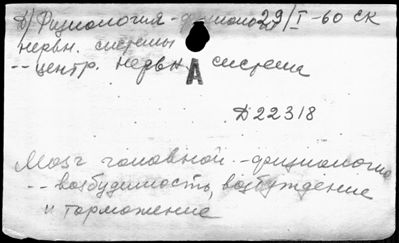 Д) Физиология - физиология 29/I-60 СК
нервн. системы
-- центр. нервн. система
А
Д22318
Мозг головной - физиология
-- возбудимость, возбуждение
и торможение